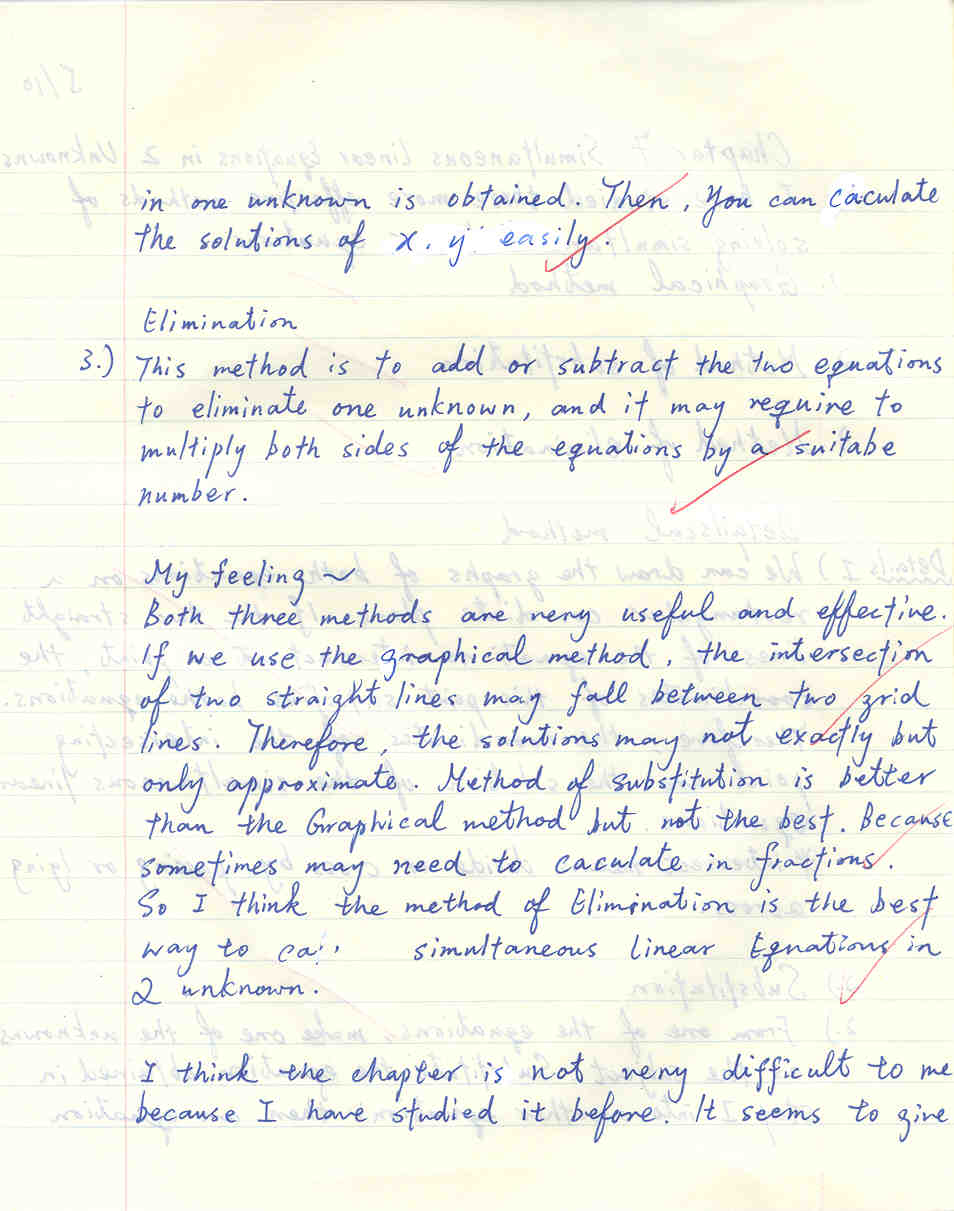 in one unknown is obtained. Then, You can caculate
the solutions of x, y easily.
Elimination
3.) This method is to add or subtract the two equations
to eliminate one unknown, and it may require to
multiply both sides of the equations by a suitabe
number.
My feeling ~
Both three methods are very useful and effective.
If we use the graphical method, the intersection
of two straight lines may fall between two grid
lines. Therefore, the solutions may not exactly but
only approximate. Method of substitution is better
than the Graphical method but not the best. Because
sometimes may need to caculate in fractions.
So I think the method of Elimination is the best
way to simultaneous linear Equations in
2 unknown.
I think the chapter is not very difficult to me
because I have studied it before. It seems to give